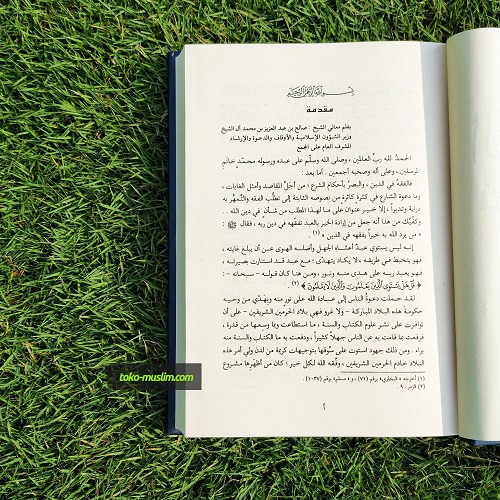 بسم الله الرحمن الرحيم
مقدمة
بقلم معالي الشيخ : صالح بن عبد العزيز بن محمد آل الشيخ
وزير الشؤون الإسلامية والأوقاف والدعوة والإرشاد
المشرف العام على المجمع
الحمدُ لله ربِّ العالمين، وصلى الله وسلَّم على عبده ورسوله محمدٍ خاتم
المرسلين، وعلى آله وصحبه أجمعين . أما بعد :
فالفقهُ في الدين ، والبصرُ بأحكام الشرع ؛ من أجلِّ المقاصد وأمثل الغايات ،
وما دعوة الشارع في كثرة كاثرة من نصوصه الثابتة إلى تطلُّب الفقه والتمهُّر به
دراية وتدبراً ، إلا خيبر عنوان على ما لهذا المطلب من شأن في دين الله ..
وكفيك من هذا أنه جعل من إرادة الخير بالعبد تفقُّهه في دين ربه ، فقال ﷺ :
« من يرد الله به خيراً يفقهه في الدين » (١) .
إنه ليس يستوي عبدٌ أعشاه الجهل وأضله الهوى عن أن يبلغ غايته ،
فهو يتخبط في طريقه ، لا يكاد يهتدى ؛ مع عبد قد استنارت بصيرته ،
فهو يعبد ربه على هدى منه ونور . ومن هنا كان قوله - سبحانه - :
﴿ قُلْ هَلْ يَسْتَوِي الَّذِينَ يَعْلَمُونَ وَالَّذِينَ لَا يَعْلَمُونَ ﴾ (٢) .
لقد حملت دعوةُ الناس إلى عبادة الله على نور منه وبهَدْي من وحيه
حكومةَ هذه البلاد المباركة – ولا غرو فهي بلاد الحرمين الشريفين – على أن
توافرت على نشر علوم الكتاب والسنة ، ما استطاعت وما وسعها من قدرة ،
فرفعت بما قامت به عن الناس جهلاً كثيراً ، ودفعت به ما الكتاب والسنة منه
براء . ومن ذلك جهود استوت على سُوقها بتوجيهات كريمة من لدن ولي أمر هذه
البلاد خادم الحرمين الشريفين ، وفَّقه الله لكل خير؛ كان من أظهرها مشروع
(١) أخرجه « البخاري » برقم (٧١) ، و « مسلم » برقم (١٠٣٧) .
(٢) الزمر : ٩ .
أ
toko-muslim.com